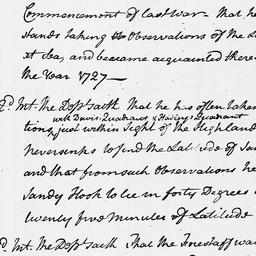 Commencement of last War - That he
stands taking the Observations of the L
at Sea, and became acquainted there
the Year 1727 —
2d. Int. The Dept. saith That he has often taken
with Davis's Quadrant & Hadley's Quadrant
tions, just within Sight of the Highland
Neversinks to find the Latitude of San
and that from such Observations he
Sandy Hook to lie in forty Degrees
twenty five Minutes of Latitude
d. Int. The Dept. saith That the Forestaff wa